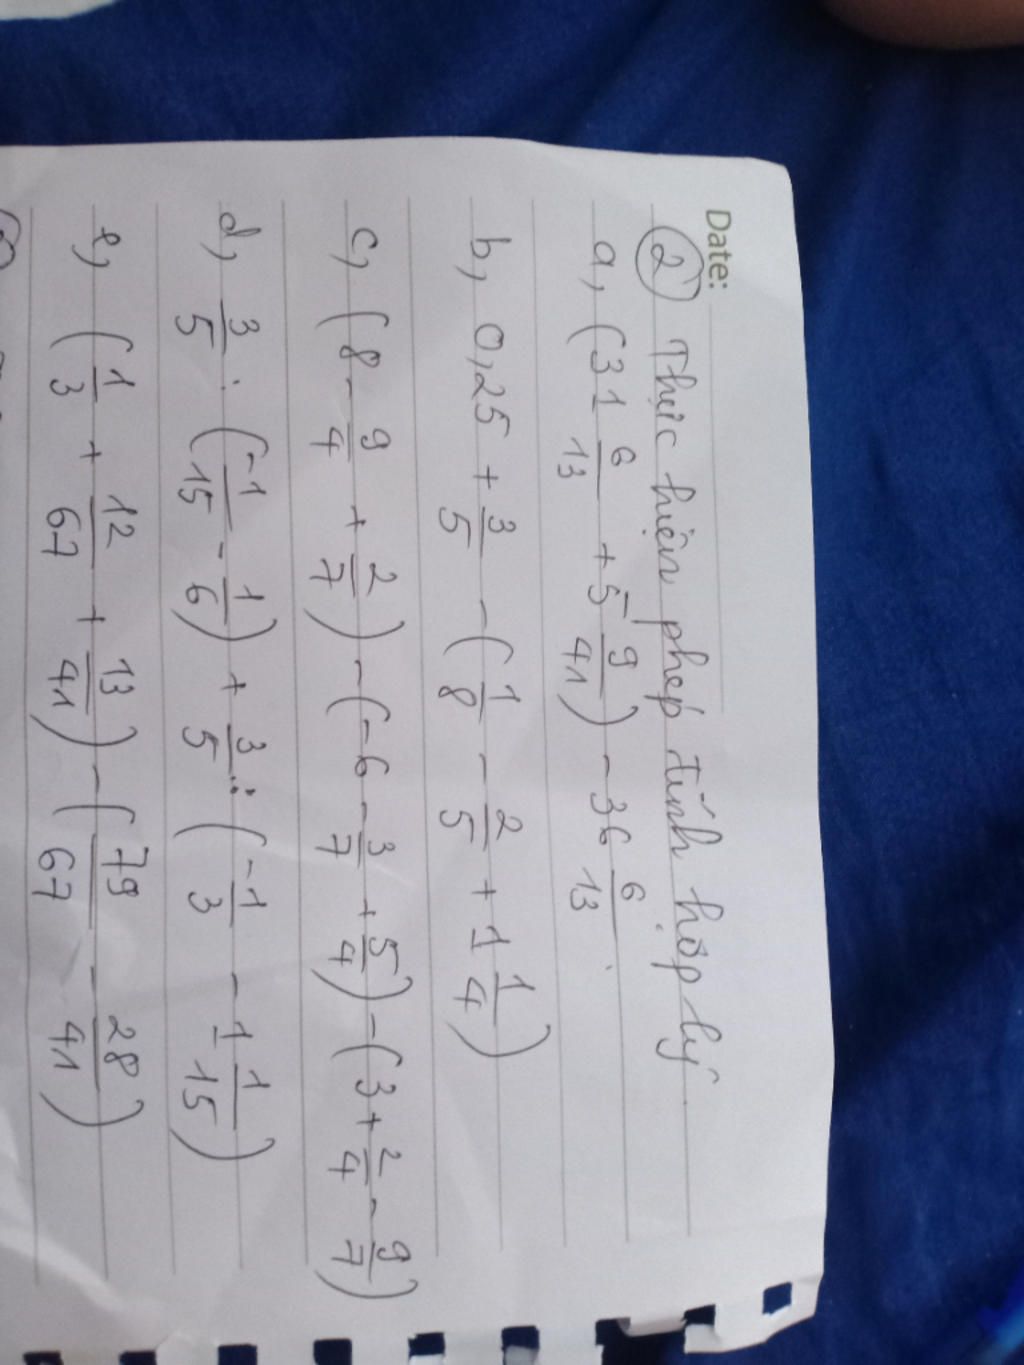 Date:
② Thực hiện phép tính hợp lý
a, (31 6/13 + 5 9/41) - 36 6/13
b, 0,25 + 3/5 - (1/8 - 2/5 + 1 1/4)
c, (8 - 9/4 + 2/7) - (-6 - 3/7 + 5/4) - (3 + 2/4 - 9/7)
d, 3/5 : (-1/15 - 1/6) + 3/5 : (-1/3 - 1 1/15)
e, (1/3 + 12/67 + 13/41) - (79/67 - 28/41)